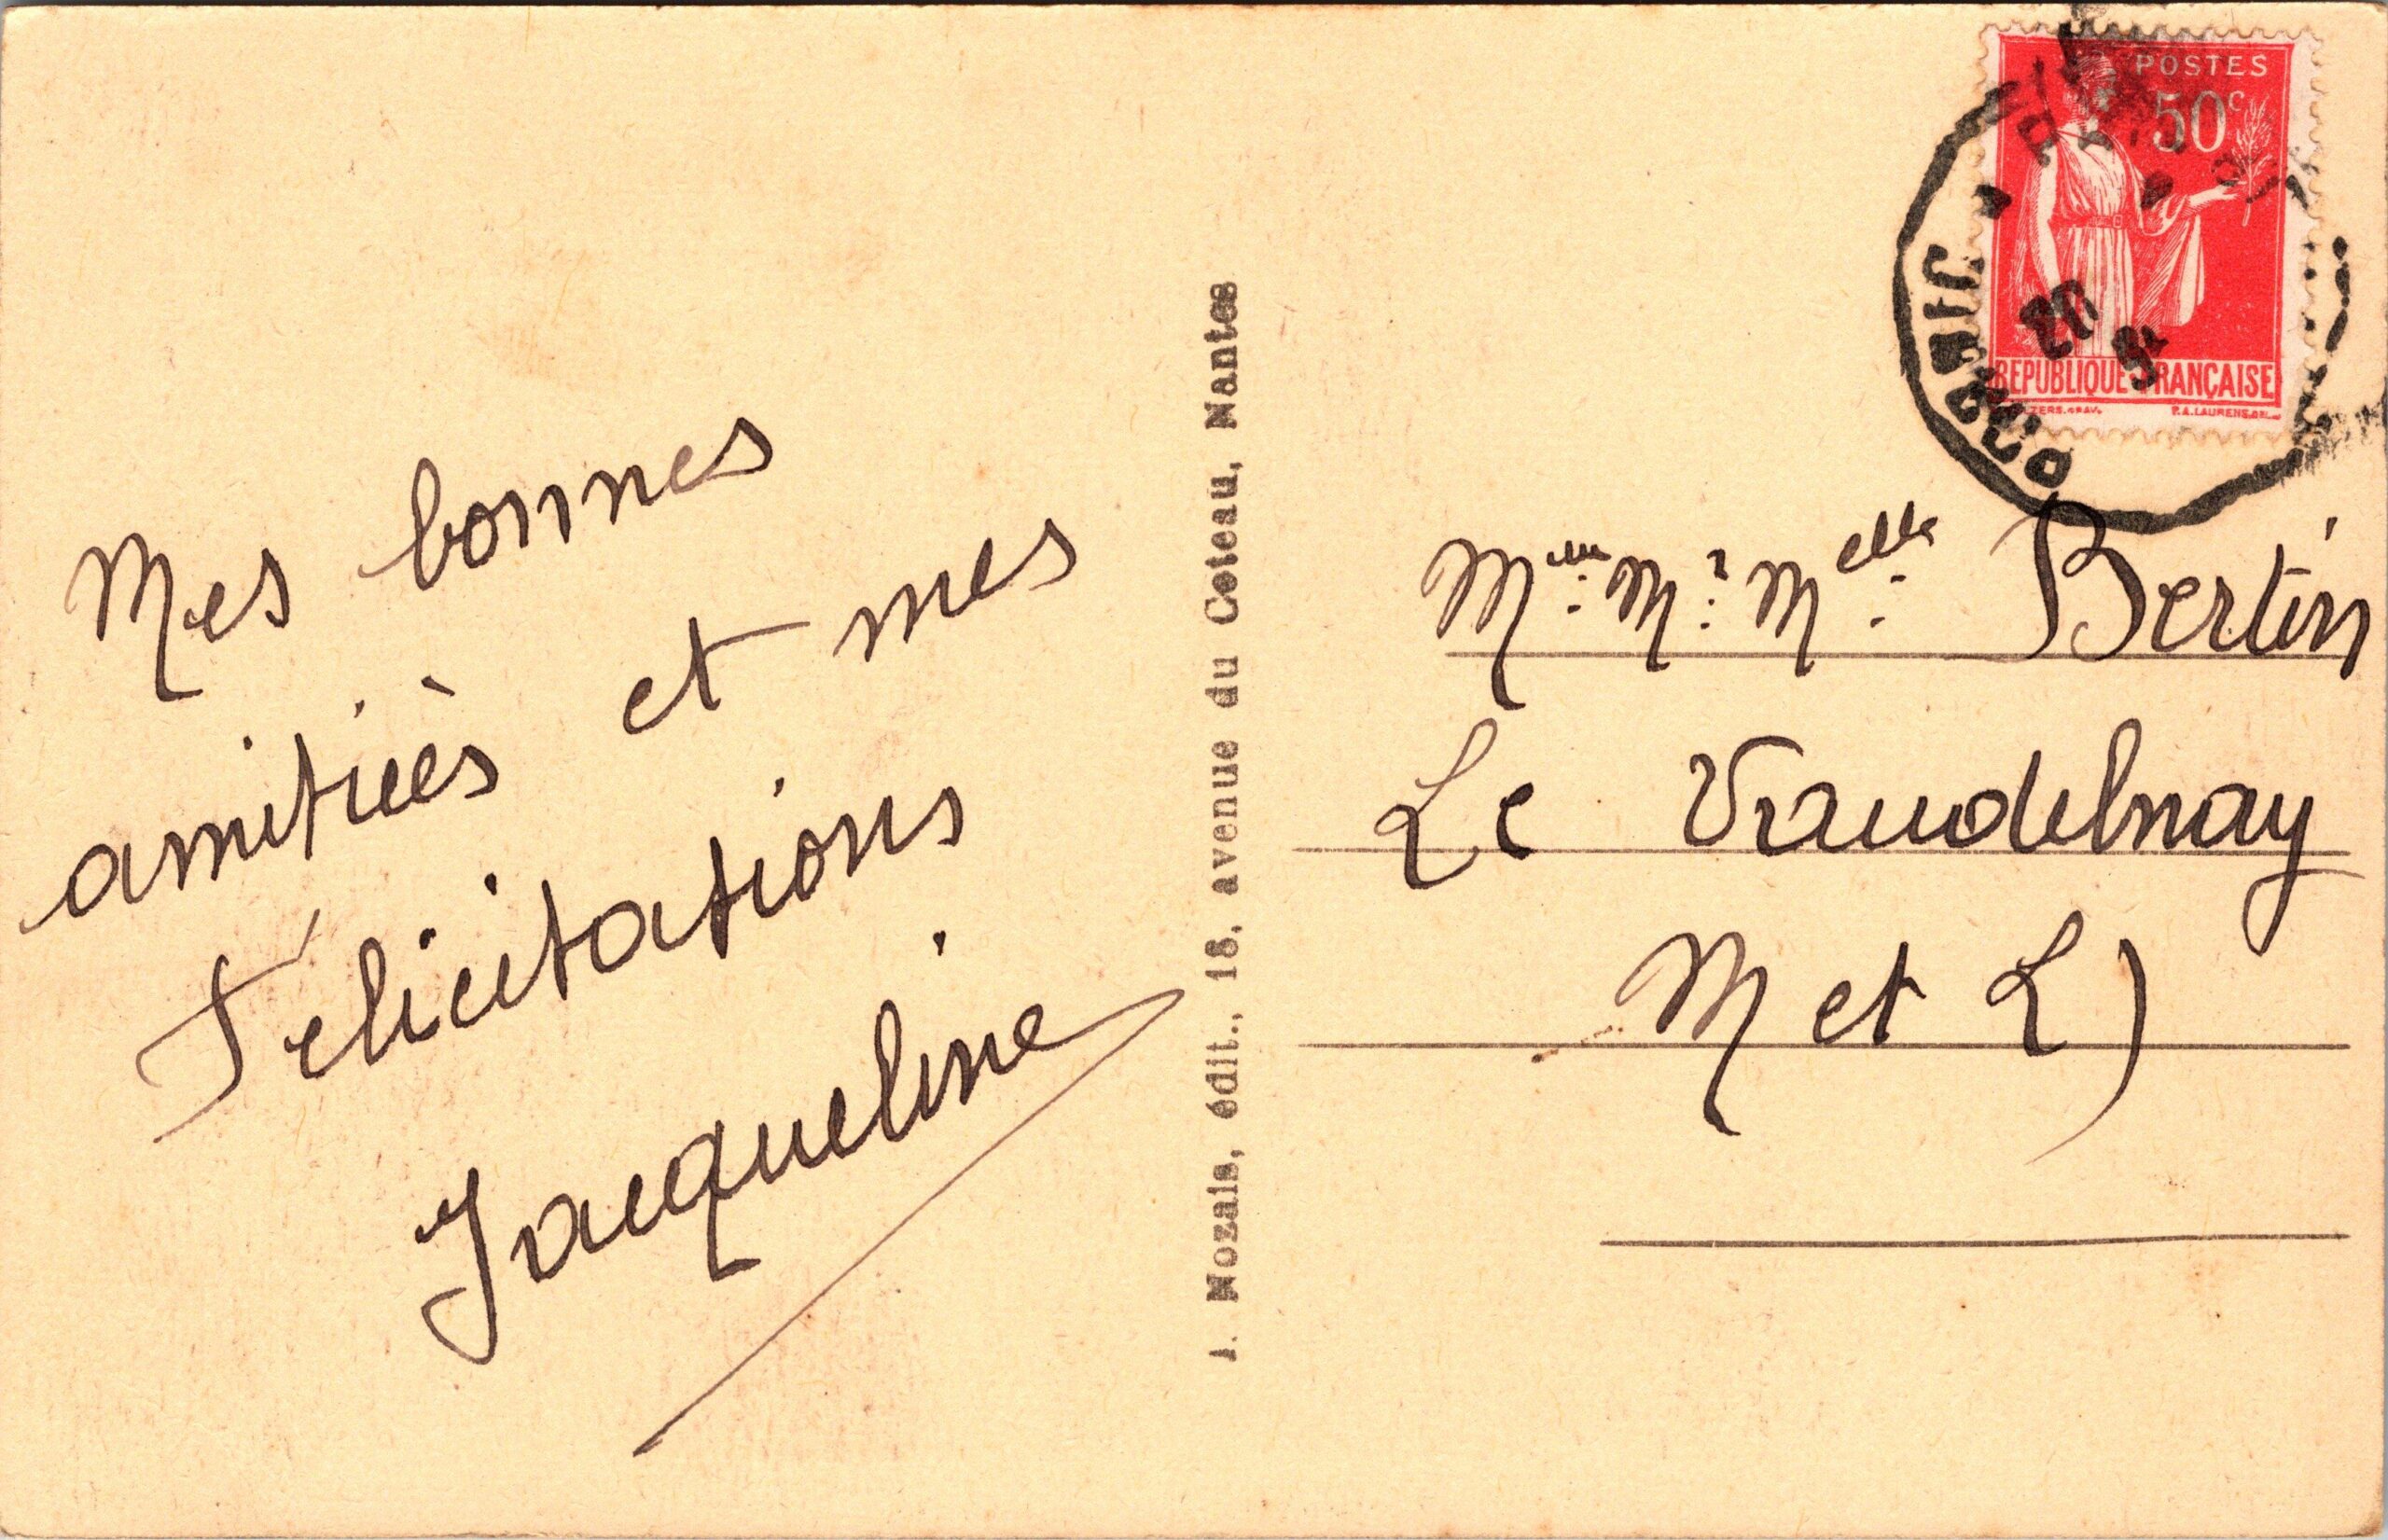 Mes bonnes
amitiés et mes
Félicitations
Jacqueline
J. Nozais, édit., 18, avenue du Coteau, Nantes
POSTES
50c
REPUBLIQUE FRANÇAISE
P.A.LAURENS.DEL.
Mme. Mr. Melle. Bertin
Le Vaudelnay
M et L)